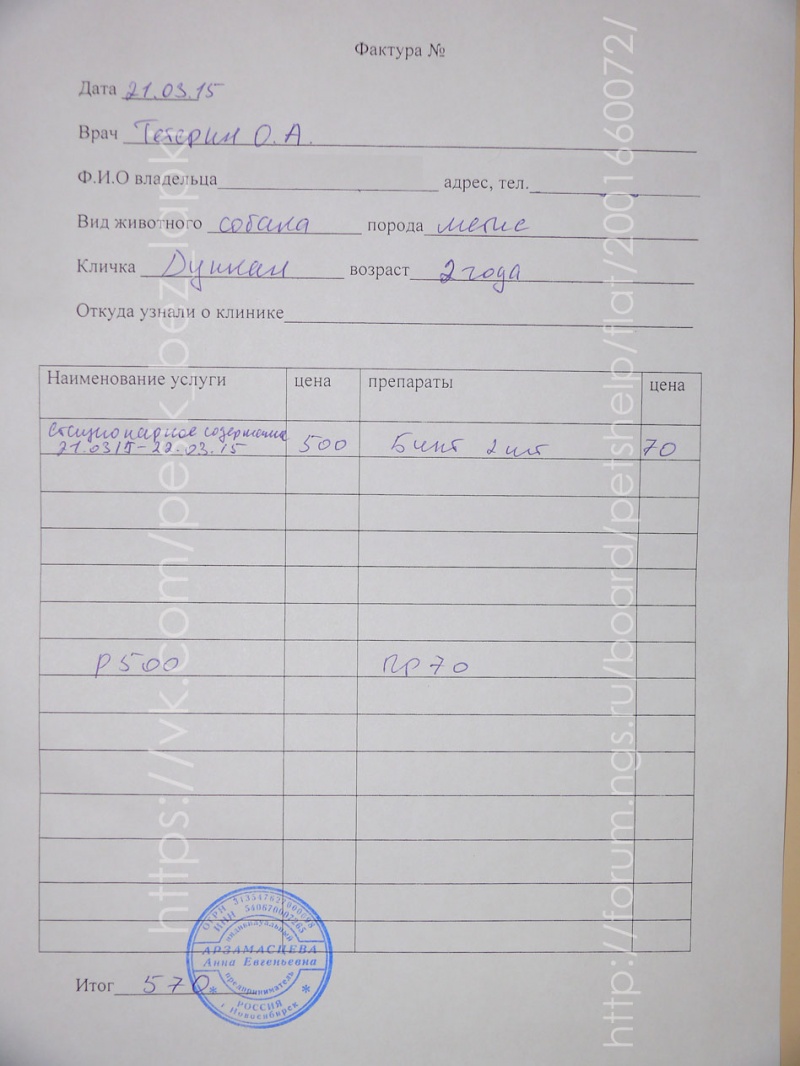 Фактура №
Дата 21.03.15
Врач Тетерин О.А.
Ф.И.О владельца адрес, тел.
Вид животного собака порода метис
Кличка Дункан возраст 2 года
Откуда узнали о клинике
Наименование услуги цена препараты цена
Стационарное содержание
21.03.15-22.03.15 500 Бинт 2 шт 70
Р 500 ПР 70
Итог 570
ОГРН
ИНН
индивидуальный
АРЗАМАСЦЕВА
Анна Евгеньевна
предприниматель
* РОССИЯ *
г Новосибирск
https://vk.com/petsik_bez_lapki
http://forum.ngs.ru/board/petshelp/flat/2001660072/